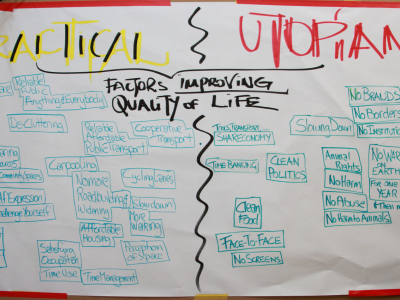 PRACTICAL
UTOPIAN
FACTORS IMPROVING
QUALITY OF LIFE
Reliable
Public
Anything & Everybody
DeCluttering
Reliable
Affordable
Public Transport
Cooperative
Transport
Carpooling
Community Spaces
No more
Road building
Widening
Cycling Lanes
Slow down
More
Walking
Self Expression
Challenge Yourself
Affordable
Housing
Satisfying
Occupation
Time Use
Time Management
Perception
of Space
SHARE ECONOMY
TIME BANKING
CLEAN
POLITICS
Clean
Food
FACE-TO-FACE
NO SCREENS
Slowing Down
No BRANDS
No Borders
No Institution
Animal
Rights
No Harm
No Abuse
No Harm to Animals
No WAR
ON
EARTH
FOR ONE
YEAR